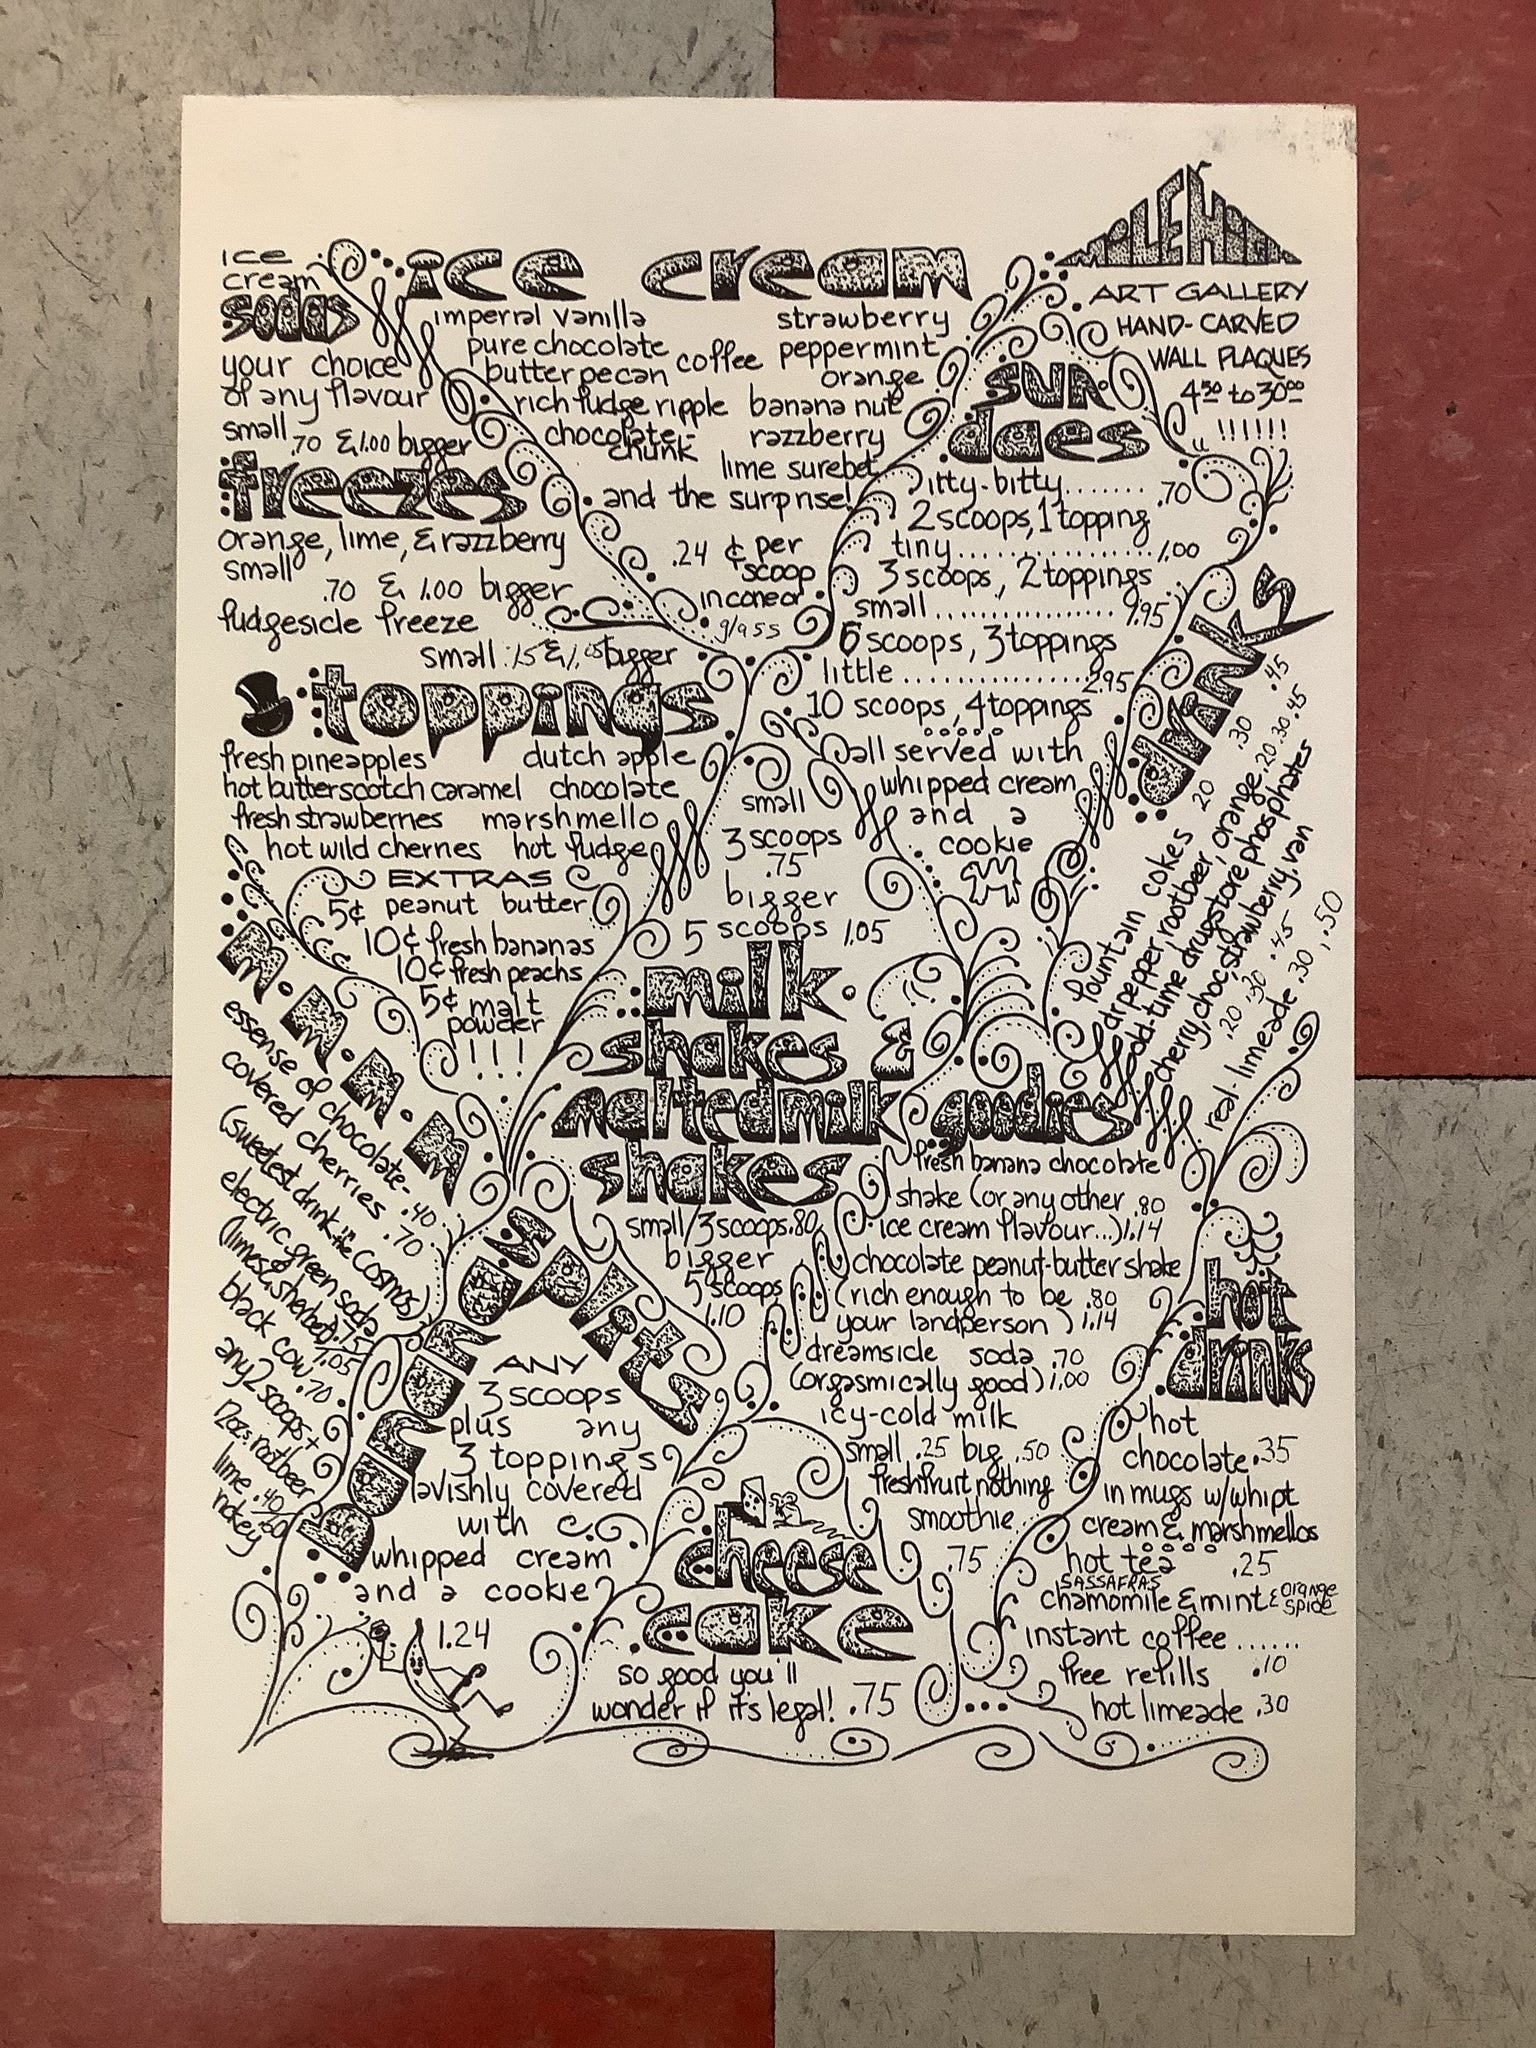 MILE HIGH
ART GALLERY
HAND-CARVED
WALL PLAQUES
4.50 to 30.00
!!!!!!
ice
cream
sodas
your choice
of any flavour
small .70 & 1.00 bigger
freezes
orange, lime, & razzberry
small
.70 & 1.00 bigger
fudgesicle freeze
small .75 & 1.05 bigger
ice cream
imperial vanilla
pure chocolate
butter pecan
rich fudge ripple
chocolate-
chunk
coffee
strawberry
peppermint
orange
banana nut
razzberry
lime surebet
and the surprise!
.24 ¢ per
scoop
in cone or
glass
small
3 scoops
.75
bigger
5 scoops 1.05
sun
daes
itty-bitty........ .70
2 scoops, 1 topping
tiny................. 1.00
3 scoops, 2 toppings
small ................
6 scoops, 3 toppings
little ................. 2.95
10 scoops, 4 toppings
all served with
whipped cream
and a
cookie
toppings
fresh pineapples dutch apple
hot butterscotch caramel chocolate
fresh strawberries marshmello
hot wild cherries hot fudge
EXTRAS
5¢ peanut butter
10¢ fresh bananas
10¢ fresh peachs
5¢ malt
powder
!!!
M.M.M.M
essense of chocolate-
covered cherries .40 .70
(sweetest drink in the cosmos)
electric green soda
(limes & sherbet) .75/1.05
black cow .70
any 2 scoops +
12ozs. rootbeer
lime .40/.60
rickey
banana splits
ANY
3 scoops
plus any
3 toppings
lavishly covered
with
whipped cream
and a cookie
1.24
milk
shakes &
maltedmilk
shakes
small/3 scoops .80
bigger
5 scoops
1.10
goodies
fresh banana chocolate
shake (or any other .80
ice cream flavour...) 1.14
chocolate peanut-butter shake
(rich enough to be .80
your landperson) 1.14
dreamsicle soda .70
(orgasmically good) 1.00
icy-cold milk
small .25 big .50
fresh fruit nothing
smoothie
.75
cheese
cake
so good you'll
wonder if it's legal! .75
drinks
fountain cokes .20 .30 .45
dr pepper, rootbeer, orange .20 .30 .45
old-time drugstore phosphates
cherry, choc, strawberry, van
.20 .30 .45
real-limeade .30, .50
hot
drinks
hot
chocolate .35
in mugs w/whipt
cream & marshmellos
hot tea .25
SASSAFRAS
chamomile & mint & orange
spice
instant coffee ......
free refills .10
hot limeade .30